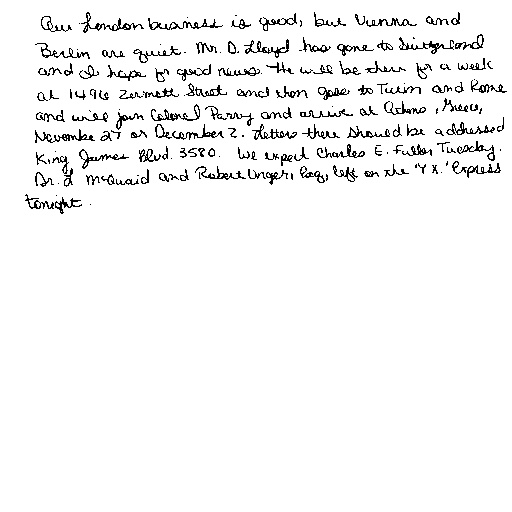 Our London business is good, but Vienna and
Berlin are quiet. Mr. D. Lloyd has gone to Switzerland
and I hope for good news. He will be there for a week
at 1496 Zermott Street and then goes to Turin and Rome
and will join Colonel Parry and arrive at Athens, Greece,
November 27 or December 2. Letters there should be addressed
King James Blvd. 3580. We expect Charles E. Fuller Tuesday.
Dr. L McQuaid and Robert Unger, Esq., left on the "Y.X." Express
tonight.